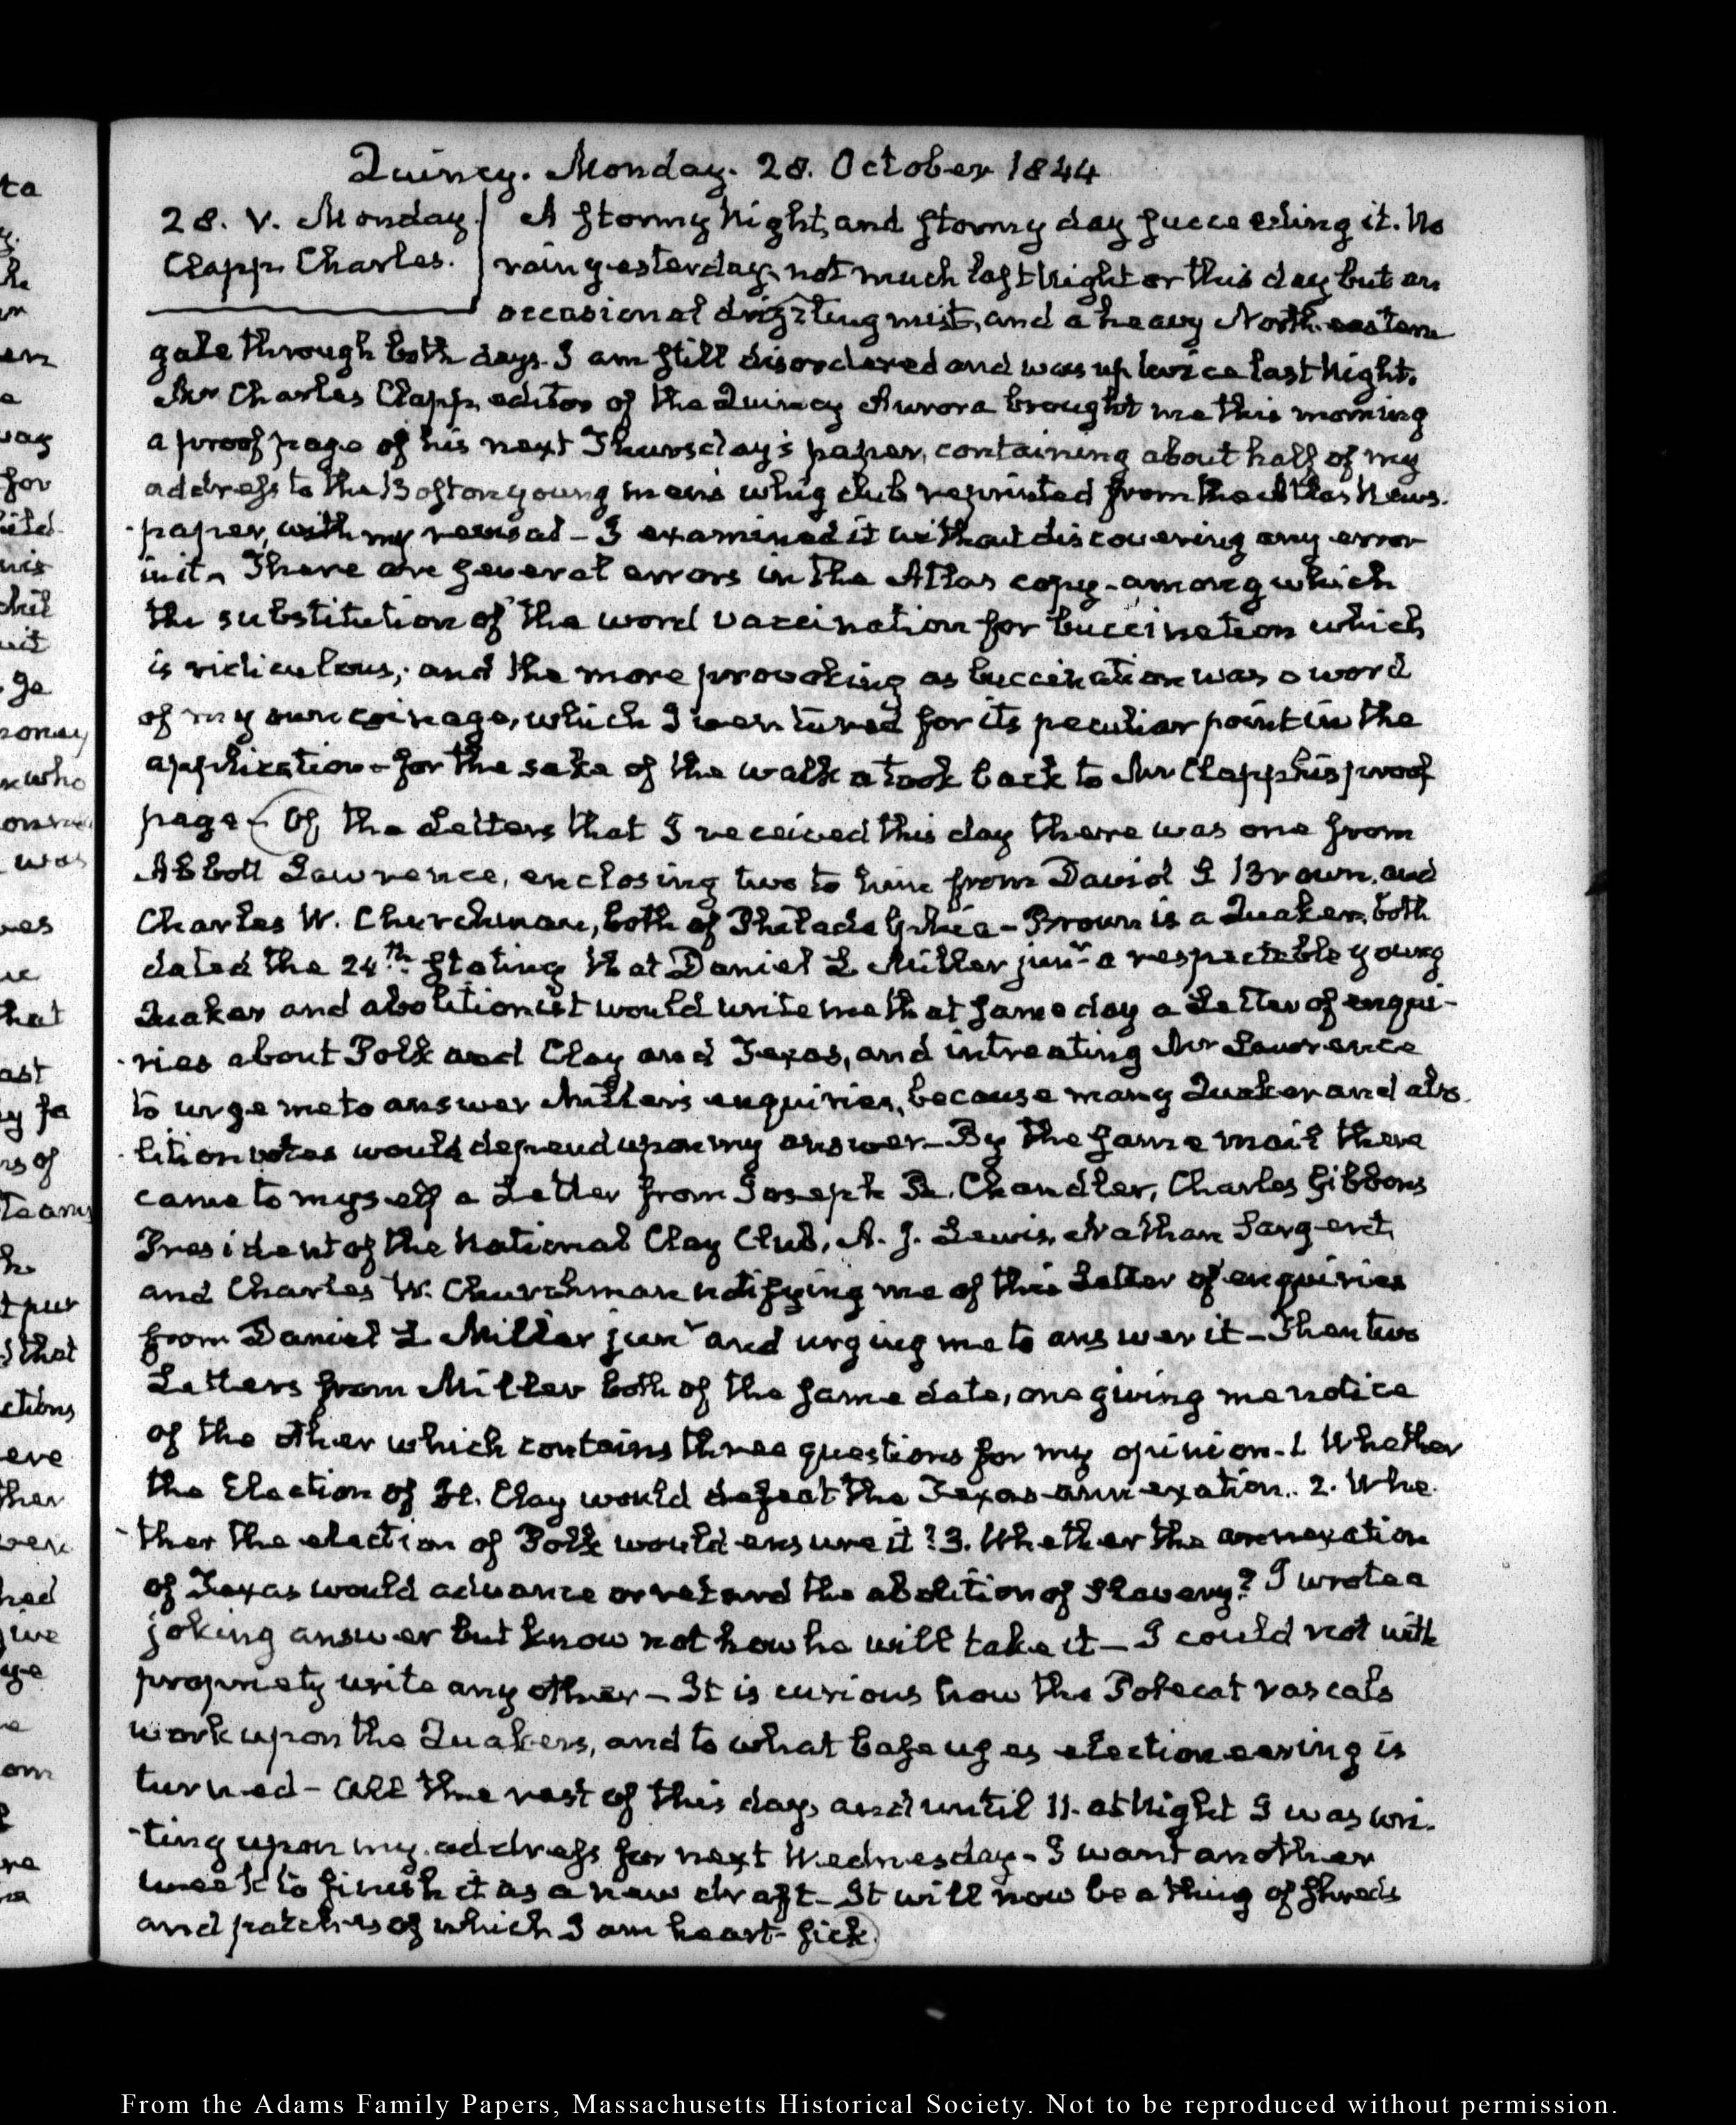 Quincy. Monday. 28. October 1844
28. V. Monday.
Clapp. Charles.
A stormy Night, and stormy day succeeding it. No
rain yesterday, not much last Night or this day but an
occasional drizzling mist, and a heavy North eastern
gale through both days. I am still disordered and was up twice last Night.
Mr Charles Clapp, editor of the Quincy Aurora brought me this morning
a proof page of his next Thursday's paper, containing about half of my
address to the Boston young men's whig club reprinted from the Atlas News-
-paper, with my revisal – I examined it without discovering any error
in it. There are several errors in the Atlas copy – among which
the substitution of the word vaccination for buccination which
is ridiculous; and the more provoking as buccination was a word
of my own coinage, which I ventured for its peculiar point in the
application – for the sake of the walk I took back to Mr Clapp his proof
page – Of the Letters that I received this day there was one from
Abbott Lawrence, enclosing two to him from David S Brown, and
Charles W. Churchman, both of Philadelphia – Brown is a Quaker, both
dated the 24th. stating that Daniel L Miller junr a respectable young
Quaker and abolitionist would write me that same day a Letter of enqui-
-ries about Polk and Clay and Texas, and intreating Mr Lawrence
to urge me to answer Miller's enquiries, because many Quaker and abo-
-lition votes would depend upon my answer – By the same mail there
came to myself a Letter from Joseph R. Chandler, Charles Gibbons
President of the National Clay Club, A. J. Lewis, Nathan Sargent,
and Charles W. Churchman notifying me of this Letter of enquiries
from Daniel L Miller junr and urging me to answer it – Then two
Letters from Miller both of the same date, one giving me notice
of the other which contains three questions for my opinion. 1. Whether
the Election of H. Clay would defeat the Texas annexation. 2. Whe-
-ther the election of Polk would ensure it? 3. Whether the annexation
of Texas would advance or retard the abolition of Slavery? I wrote a
joking answer but know not how he will take it – I could not with
propriety write any other – It is curious how the Polecat rascals
work upon the Quakers, and to what base uses electioneering is
turned – All the rest of this day, and until 11. at Night I was wri-
-ting upon my address for next Wednesday – I want another
week to finish it as a new draft – It will now be a thing of shreds
and patches of which I am heart-sick.
ta
for
who
was
that
ast
y fa
rs of
t pur
that
ctions
From the Adams Family Papers, Massachusetts Historical Society. Not to be reproduced without permission.